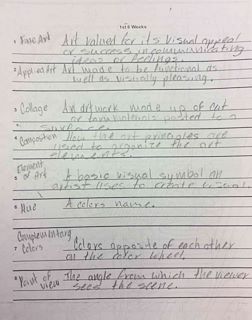 1st 6 Weeks
Fine Art Art valued for its visual appeal
or success in communicating
ideas or feelings.
Applied Art Art made to be functional as
well as visually pleasing.
Collage An artwork made up of cut
or torn materials pasted to a
surface.
Composition How the art principles are
used to organize the art
elements.
Element
of Art A basic visual symbol an
artist uses to create visual
Hue A colors name.
Complementary
Colors Colors opposite of each other
on the color wheel.
Point of The angle from which the viewer
view sees the scene.